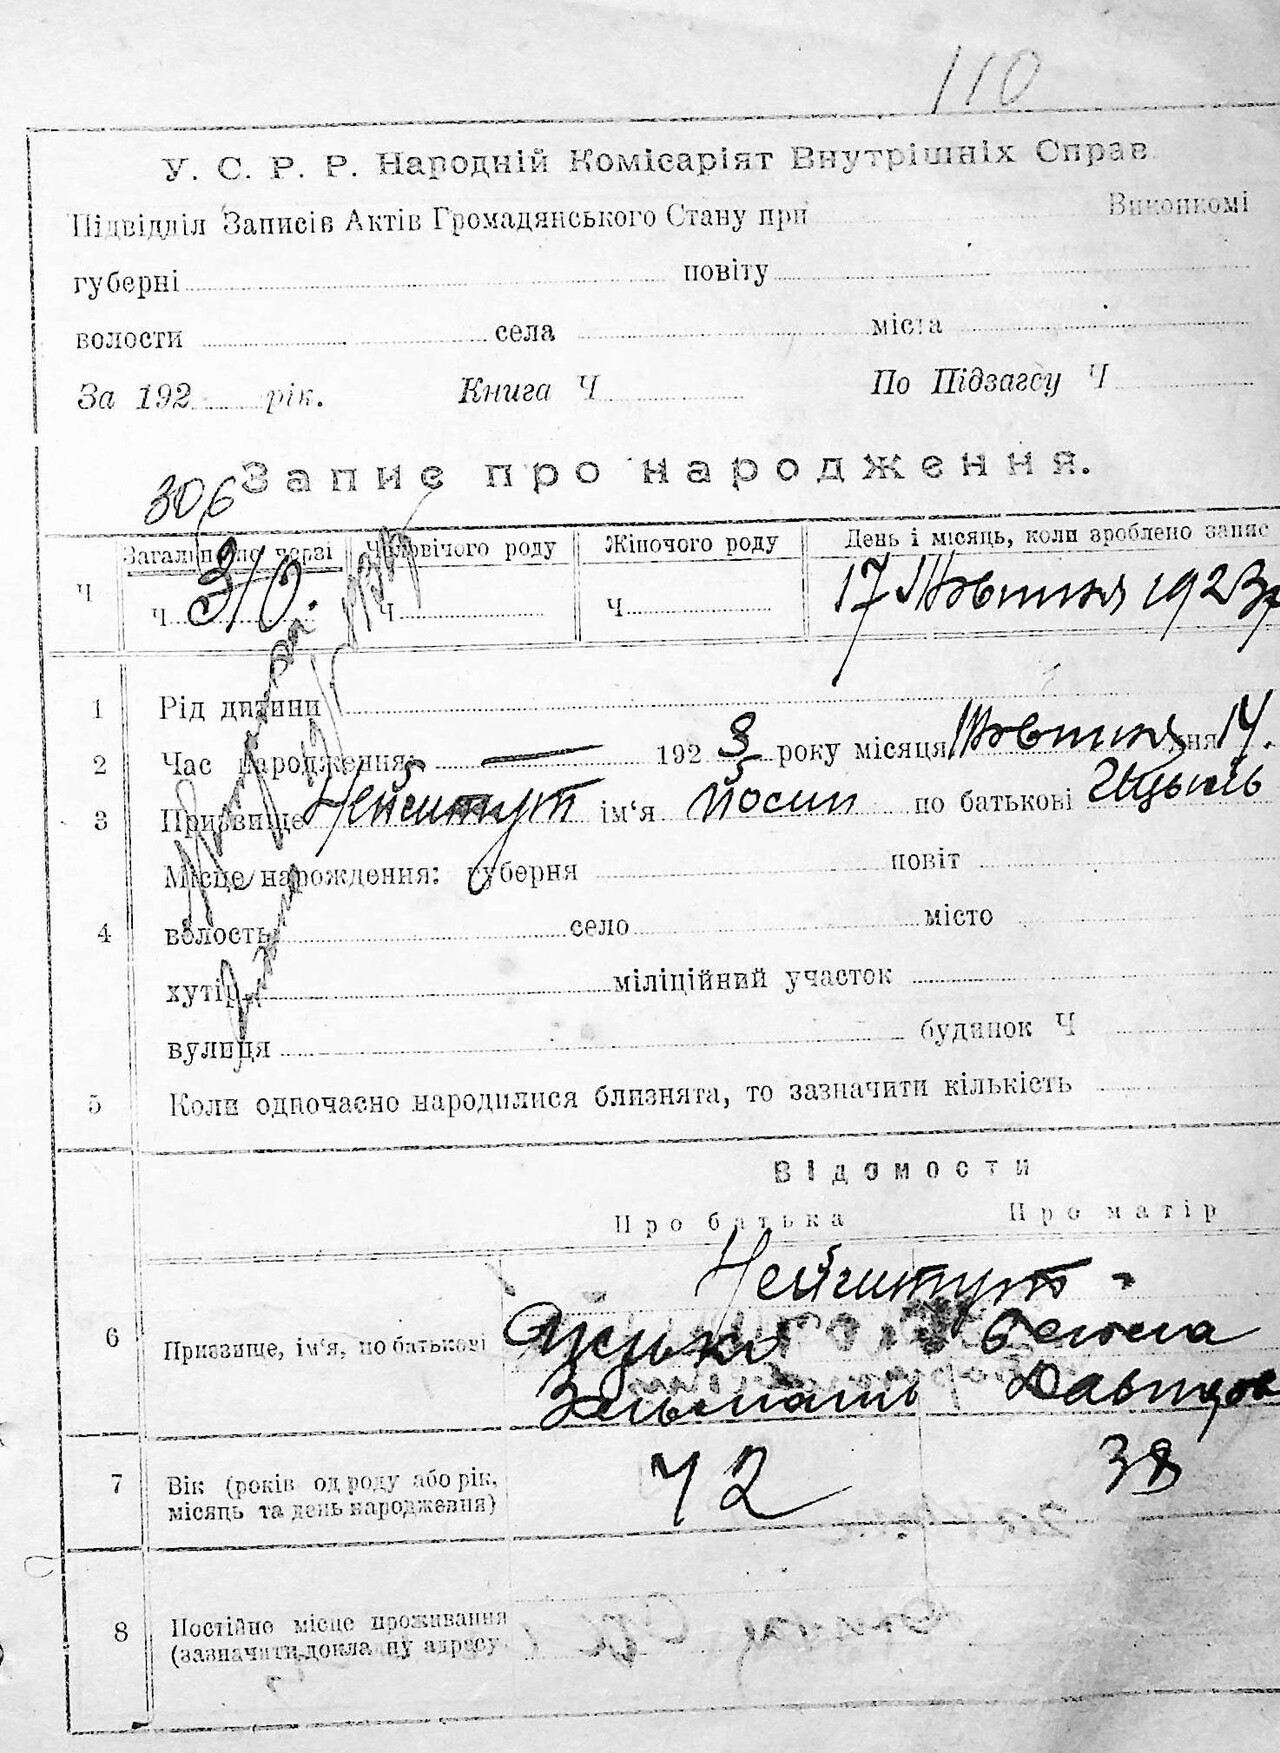 110
У. С. Р. Р. Народній Комісаріят Внутрішніх Справ
Підвідділ Записів Актів Громадянського Стану при Виконкомі
губерні повіту
волости села міста
За 192 рік. Книга Ч По Підзагсу Ч
Запис про народження.
306
Ч Загальн по черзі Чоловічого роду Жіночого роду День і місяць, коли зроблено запис
Ч 310. Ч Ч 17 Жовтня 1923 р
1 Рід дитини
2 Час народження: — 1923 року місяця Жовтня дня 14.
3 Призвище Нейгитут ім‘я Йосип по батькові Іцькь
4 Місце нарождення: губерня повіт
волость село місто
хутір міліційний участок
вулиця будинок Ч
5 Коли одночасно народилися близнята, то зазначити кількість
Відомости
Про батька Про матір
Нейгитут
6 Призвище, ім‘я, по батькові Давидов
7 Вік (років од роду або рік, місяць та день народження) 42 38
8 Постійне місце проживання (зазначити докладну адресу